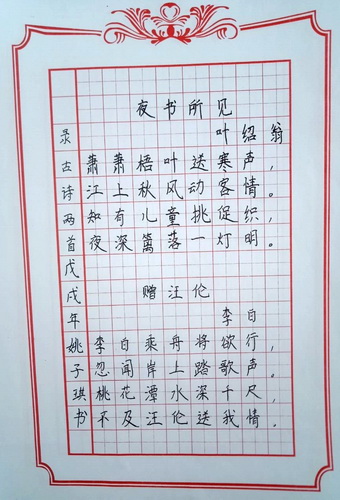 夜书所见
叶绍翁
萧萧梧叶送寒声，
江上秋风动客情。
知有儿童挑促织，
夜深篱落一灯明。
赠汪伦
李白
李白乘舟将欲行，
忽闻岸上踏歌声。
桃花潭水深千尺，
不及汪伦送我情。
录古诗两首戊戌年姚子琪书